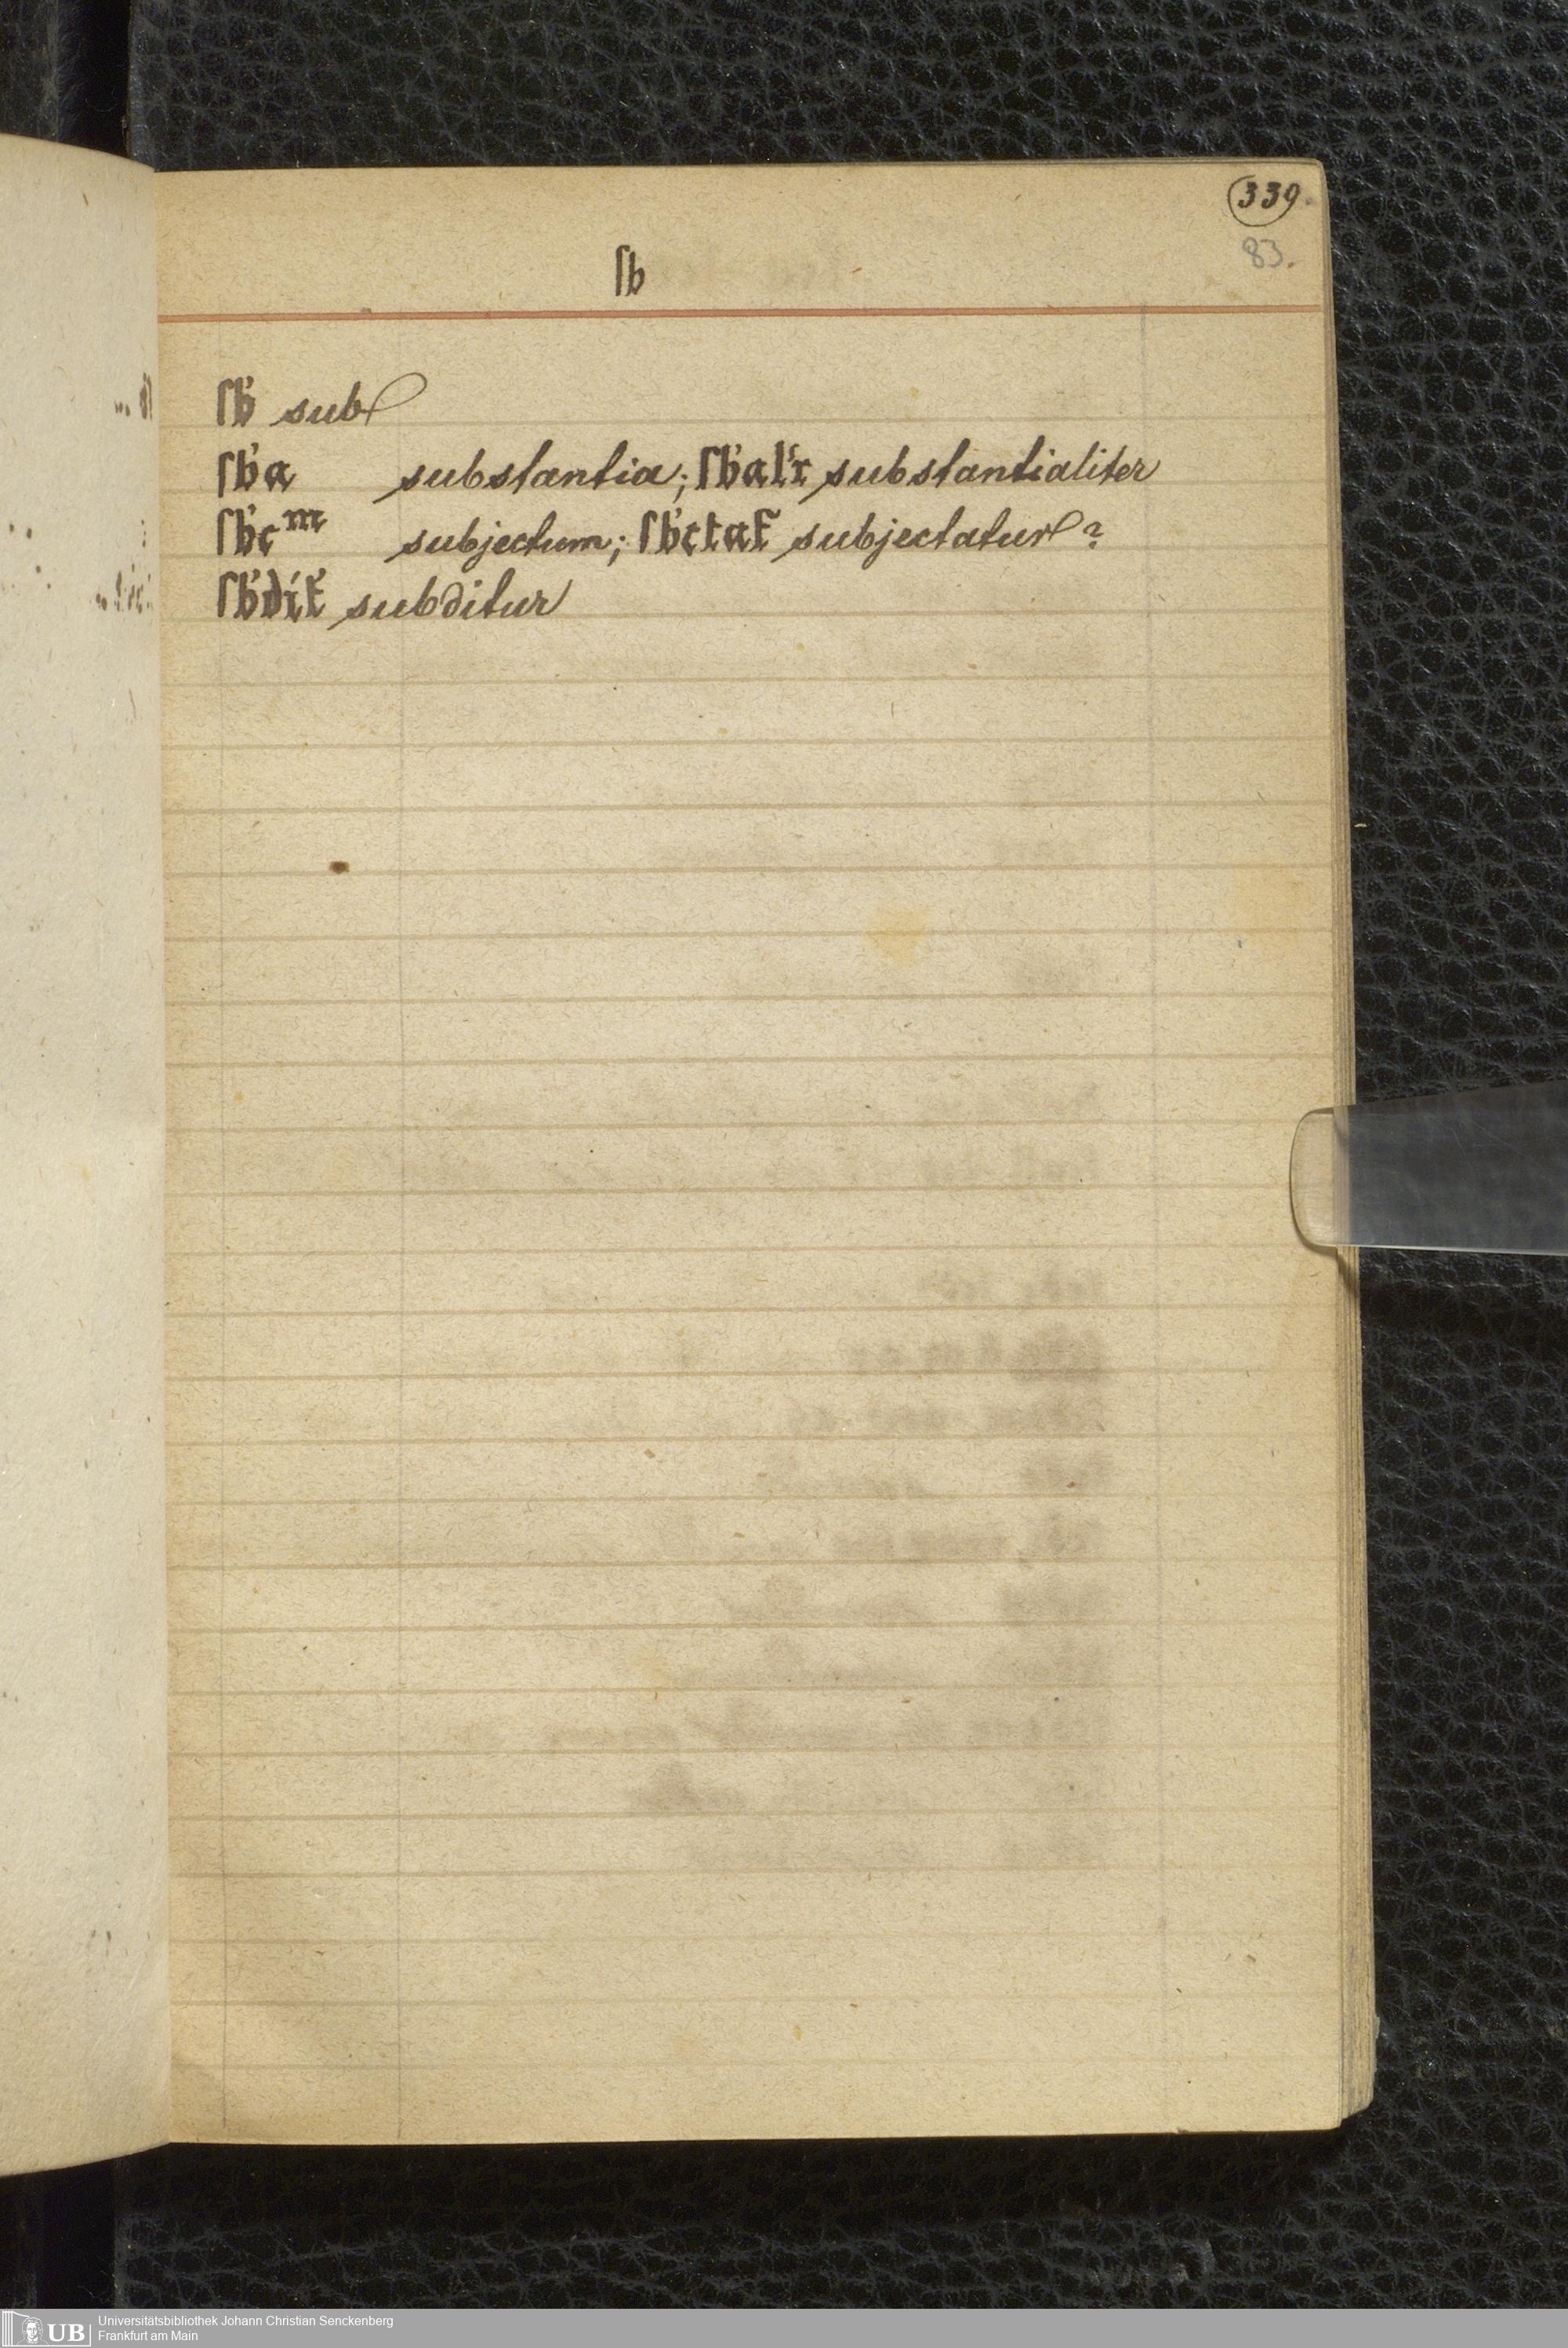 339.
83.
ſb
ſb̓ sub
ſb̓a substantia; ſb̓al̓r substantialiter
ſb̓cᵐ subjectum; ſb̓ctat̄ subjectatur?
ſb̓dit̓ subditur
UB Universitätsbibliothek Johann Christian Senckenberg
Frankfurt am Main